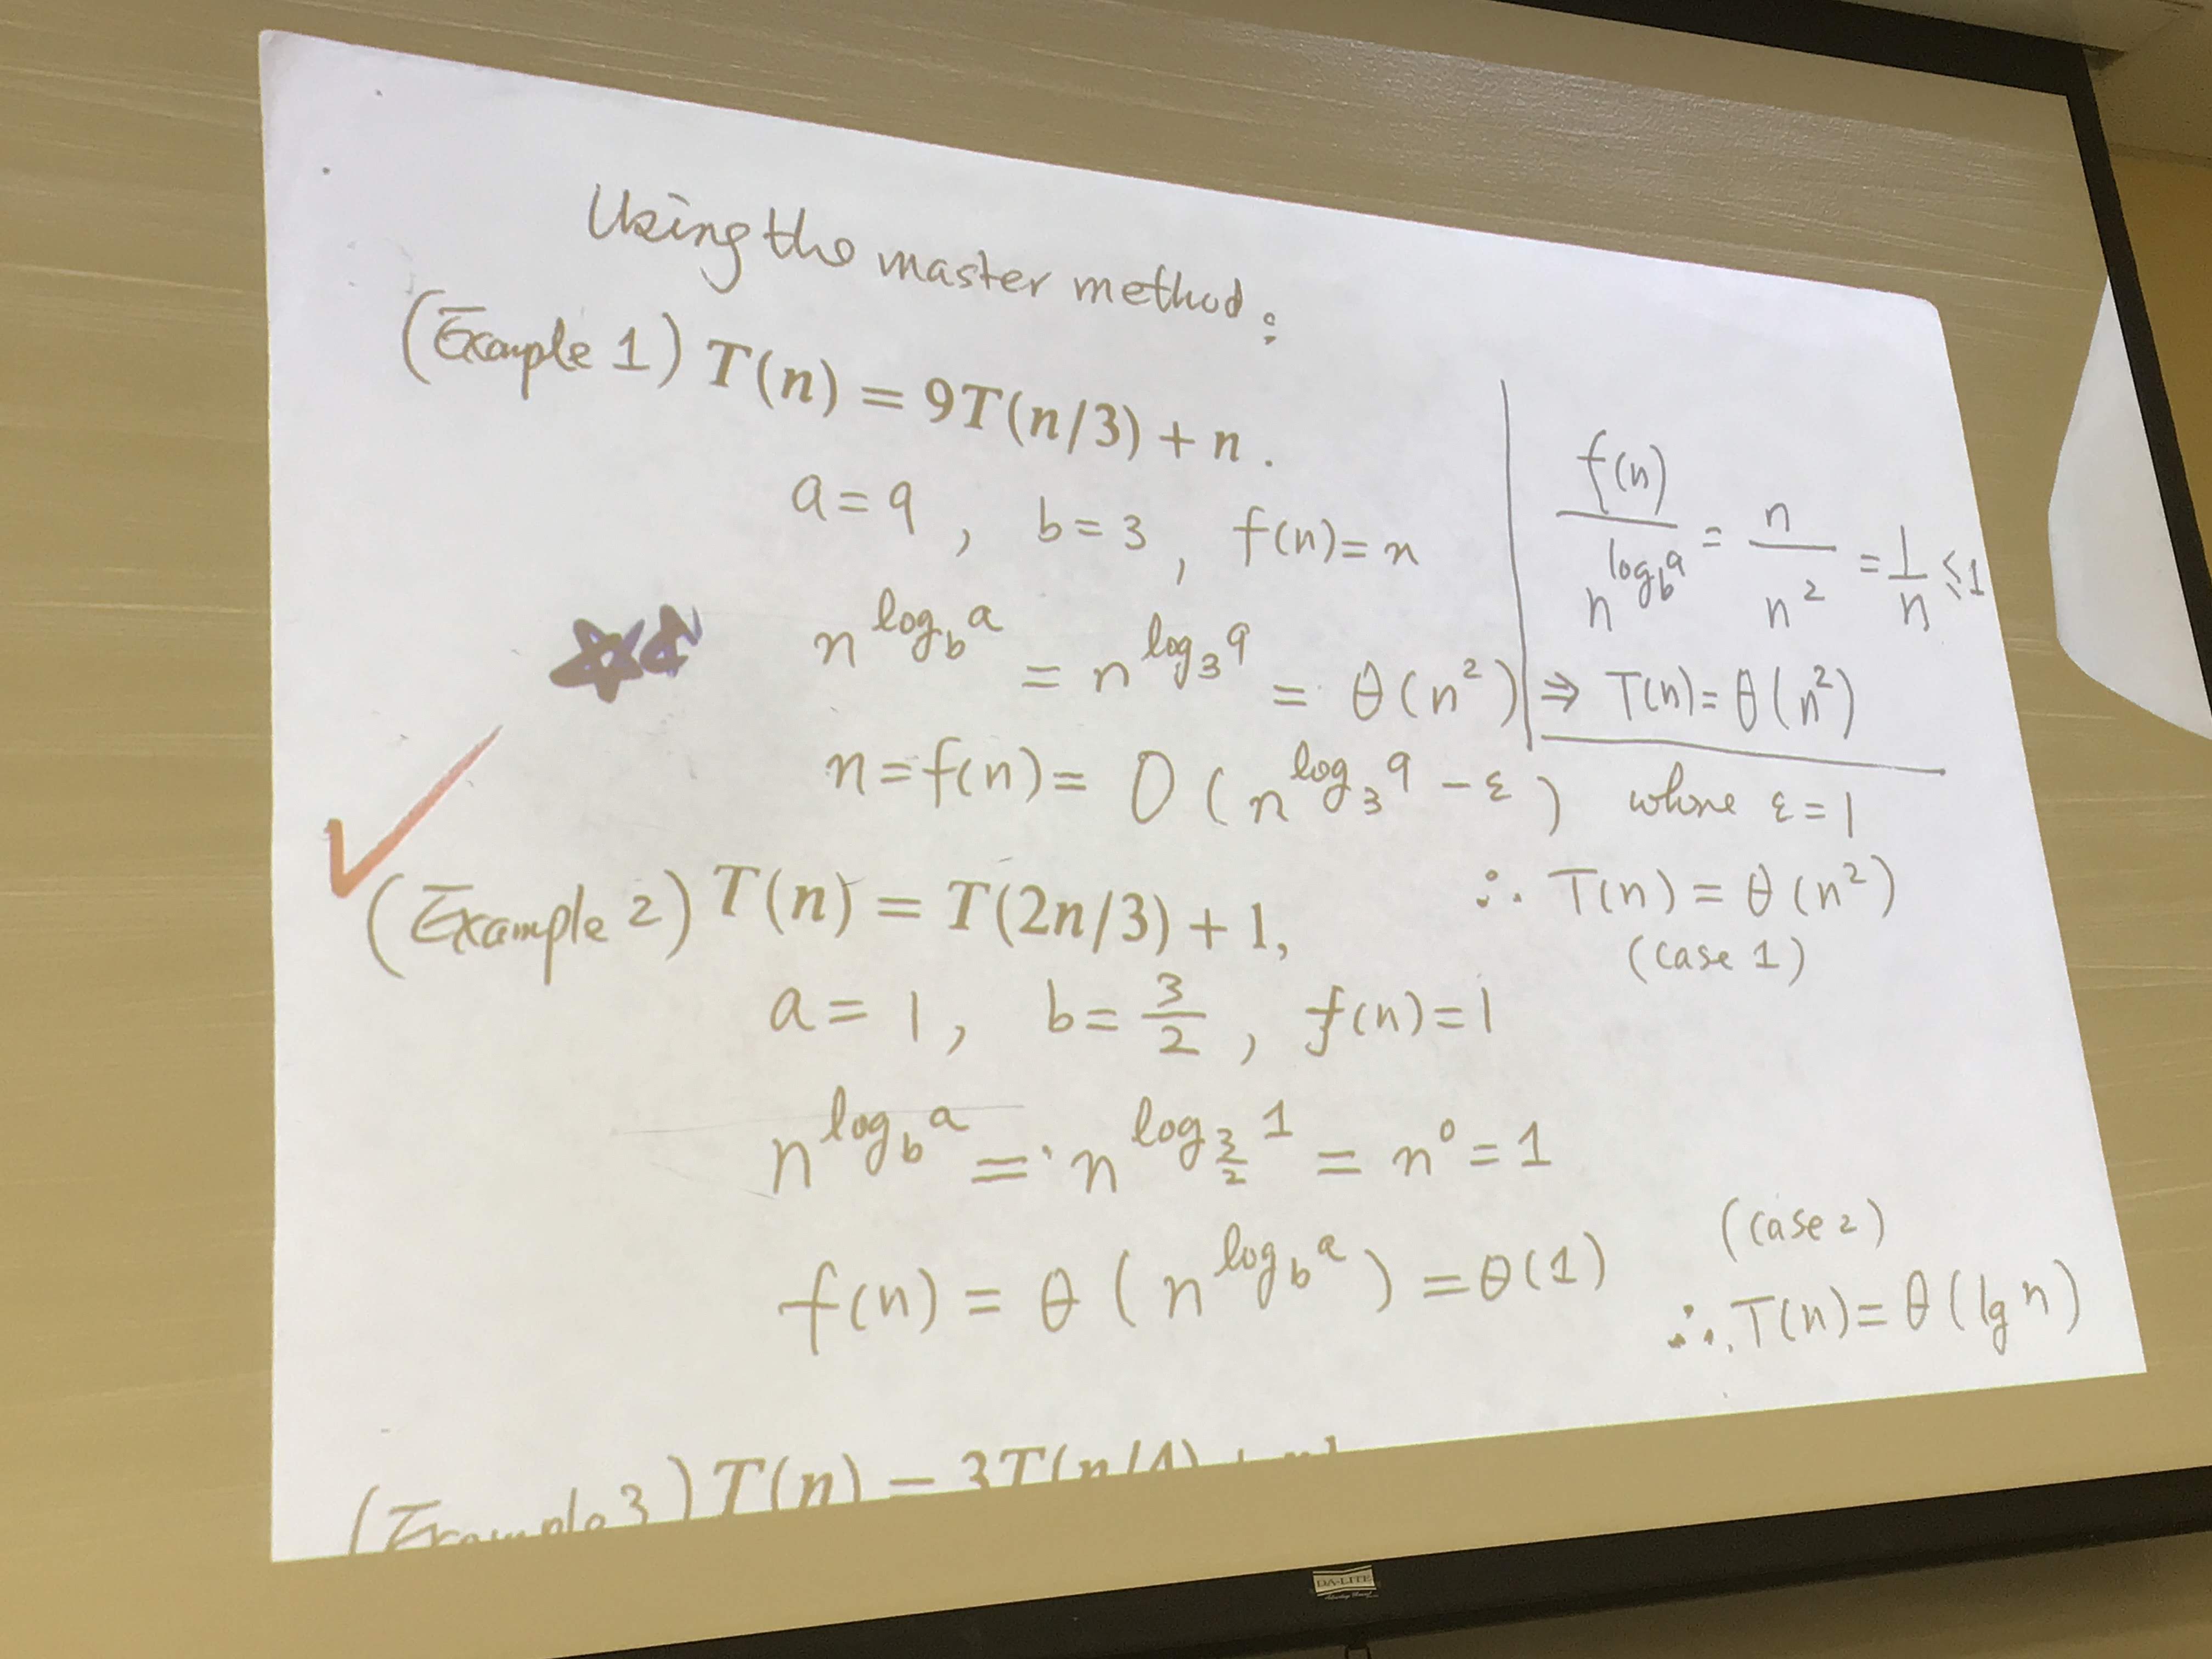 Using the master method:
(Example 1) T(n) = 9T(n/3) + n.
a = 9, b = 3, f(n) = n
n^{log_b a} = n^{log_3 9} = θ(n²)
f(n) / n^{log_b a} = n / n² = 1/n ≤ 1
⇒ T(n) = θ(n²)
n = f(n) = O(n^{log_3 9 - ε}) where ε = 1
∴ T(n) = θ(n²)
(case 1)
(Example 2) T(n) = T(2n/3) + 1,
a = 1, b = 3/2, f(n) = 1
n^{log_b a} = n^{log_{3/2} 1} = n⁰ = 1
(case 2)
f(n) = θ(n^{log_b a}) = θ(1)
∴ T(n) = θ(lg n)
(Example 3) T(n) = 3T(n/4) +
DA-LITE